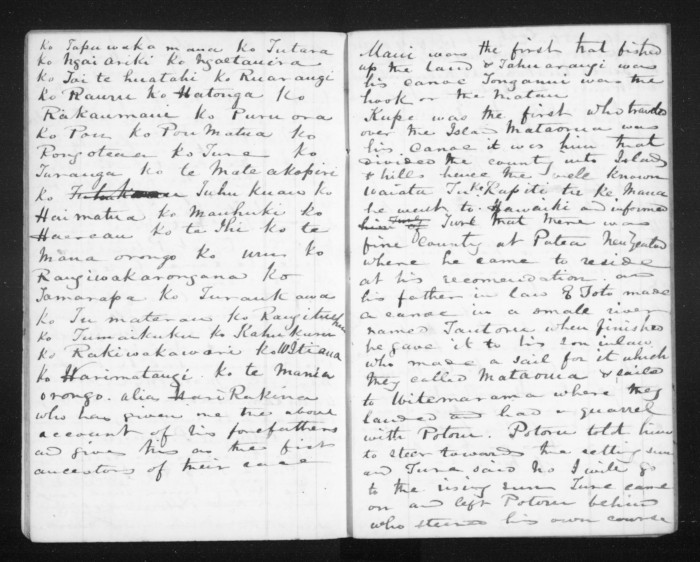 Ko Tapuwaka mana Ko Tutara
Ko Ngai Ariki Ko Ngaetauira
Ko Tai te huatahi Ko Ruarangi
Ko Rauru Ko Hatonga Ko
Rakaumaui Ko Puru ora
Ko Pou Ko Pou Matua Ko
Rongoteaa Ko Ture Ko
Turanga Ko te Mate akopiri
Ko Tuhu Kuau Ko
Haimatua Ko Mauhuki Ko
Ko te Ihi Ko te
Mana orongo Ko uru Ko
Rangiwakarongana Ko
Tamarapa Ko Turau Kawa
Ko Tu materau Ko
Ko Tumaikuku Ko Kahukura
Ko Rakiwakaware Ko Witiana
Ko Harimatangi Ko te Mania
orongo. alias Hari Rakina
who has given me the above
account of his forefathers
and gives this as the first
ancestors of their race
Maui was the first that fished
up the Land & Tahuarangi was
his canoe Tonganui was the
hook or the Matau
Kupe was the first who traveled
over the Island Mataorua was
his Canoe it was him that
divided the country into Islands
& hills hence the well known
Waiata Kapiti tu Ke Mana
he went to Hawaiki and informed
Ture that there was
fine County at Patea New Zealand
where he came to reside
at his recomendation. and
his father in law E Toto made
a canoe in a small river
named Tautoru when finished
he gave it to his son in law
who made a sail for it which
they called Mataorua & sailed
to Witemarama where they
landed and had a quarrel
with Potoru. Potoru told him
to steer towards the setting sun
and Ture said No I will go
to the rising sun Ture came
on and left Potoru behind
who steered his own course